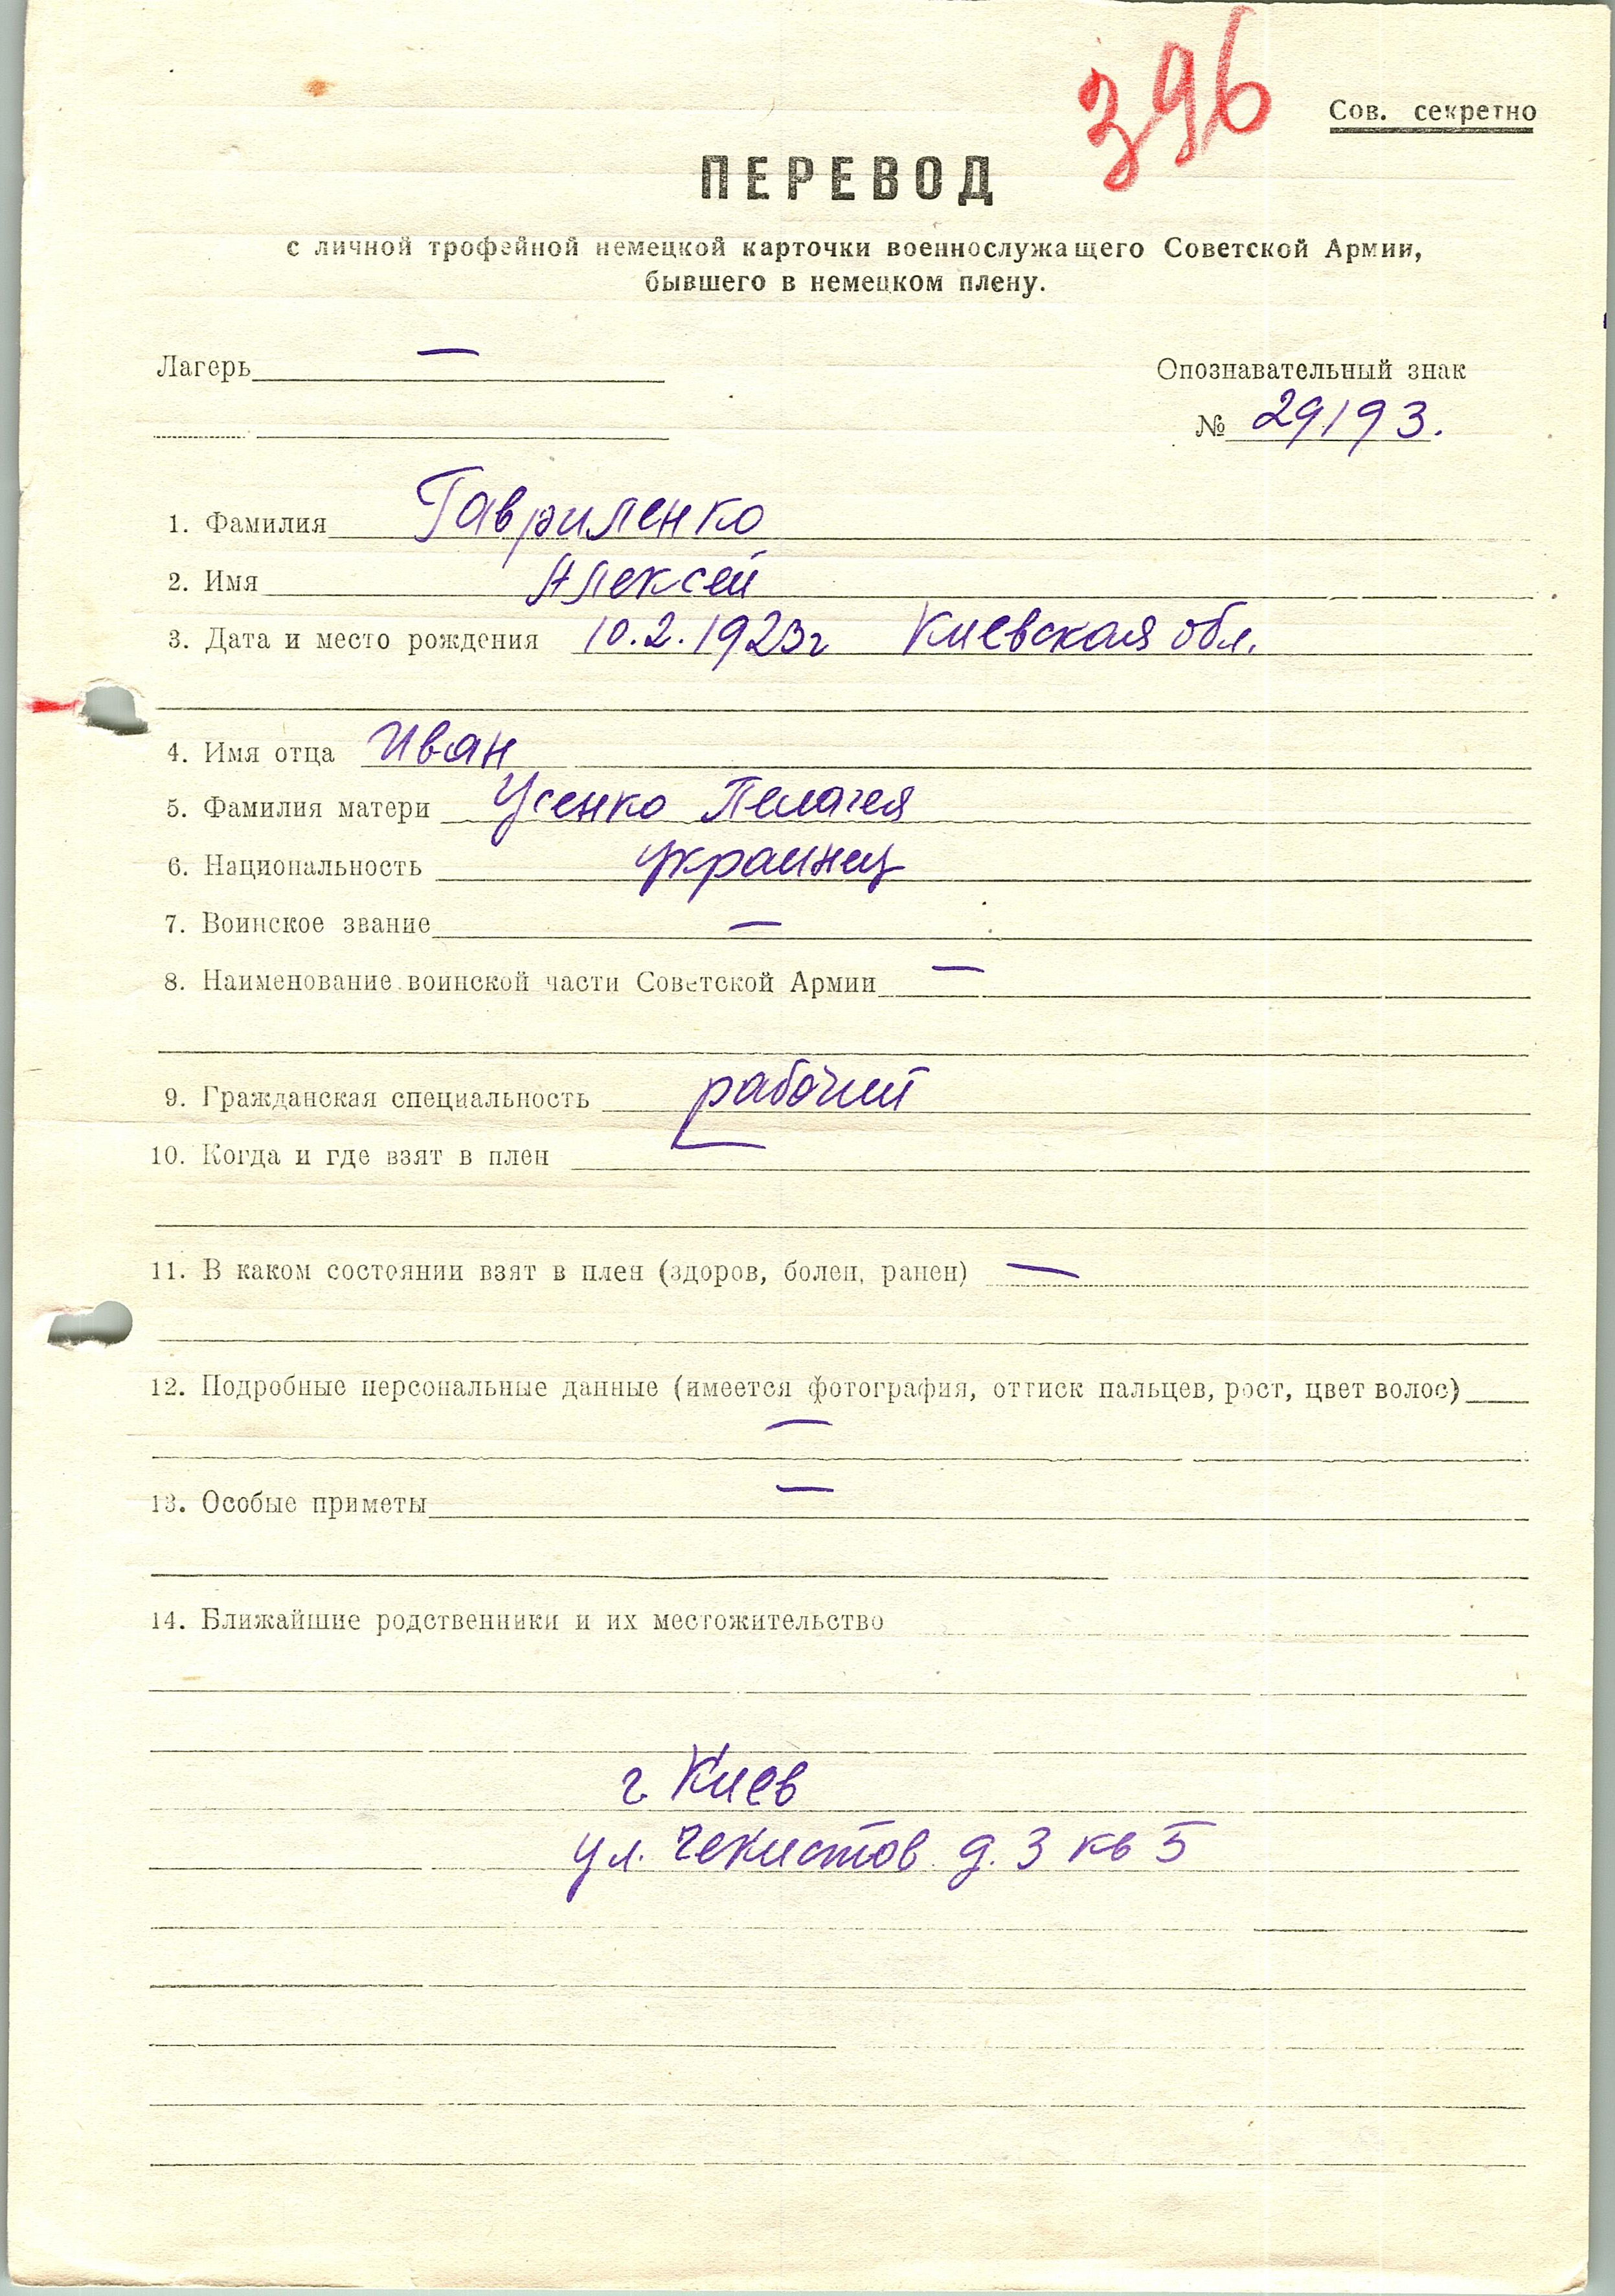 396
Сов. секретно
ПЕРЕВОД
с личной трофейной немецкой карточки военнослужащего Советской Армии,
бывшего в немецком плену.
Лагерь —
Опознавательный знак
№ 29193.
1. Фамилия Гавриленко
2. Имя Алексей
3. Дата и место рождения 10.2.1923г Киевская обл.
4. Имя отца Иван
5. Фамилия матери Усенко Пелагея
6. Национальность украинец
7. Воинское звание —
8. Наименование воинской части Советской Армии —
9. Гражданская специальность рабочий
10. Когда и где взят в плен —
11. В каком состоянии взят в плен (здоров, болен, ранен) —
12. Подробные персональные данные (имеется фотография, оттиск пальцев, рост, цвет волос)
—
13. Особые приметы —
14. Ближайшие родственники и их местожительство
г. Киев
ул. Чекистов д. 3 кв 5